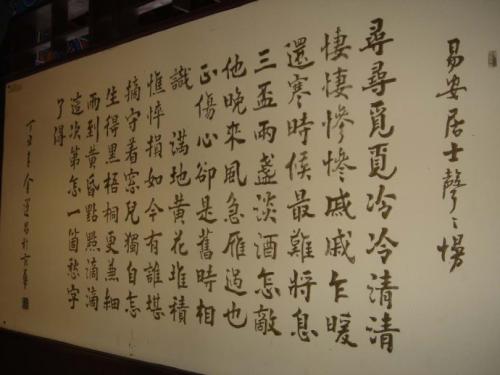 易安居士聲〻慢
尋尋覓覓冷冷清清
悽悽慘慘戚戚乍暖
還寒時候最難將息
三盃兩盞淡酒怎敵
他晚來風急雁過也
正傷心卻是舊時相
識 滿地黃花堆積
憔悴損如今有誰堪
摘守着窓兒獨自怎
生得黑梧桐更兼細
雨到黃昏點點滴滴
這次第怎一箇愁字
了得
丁丑年金運昌於京華